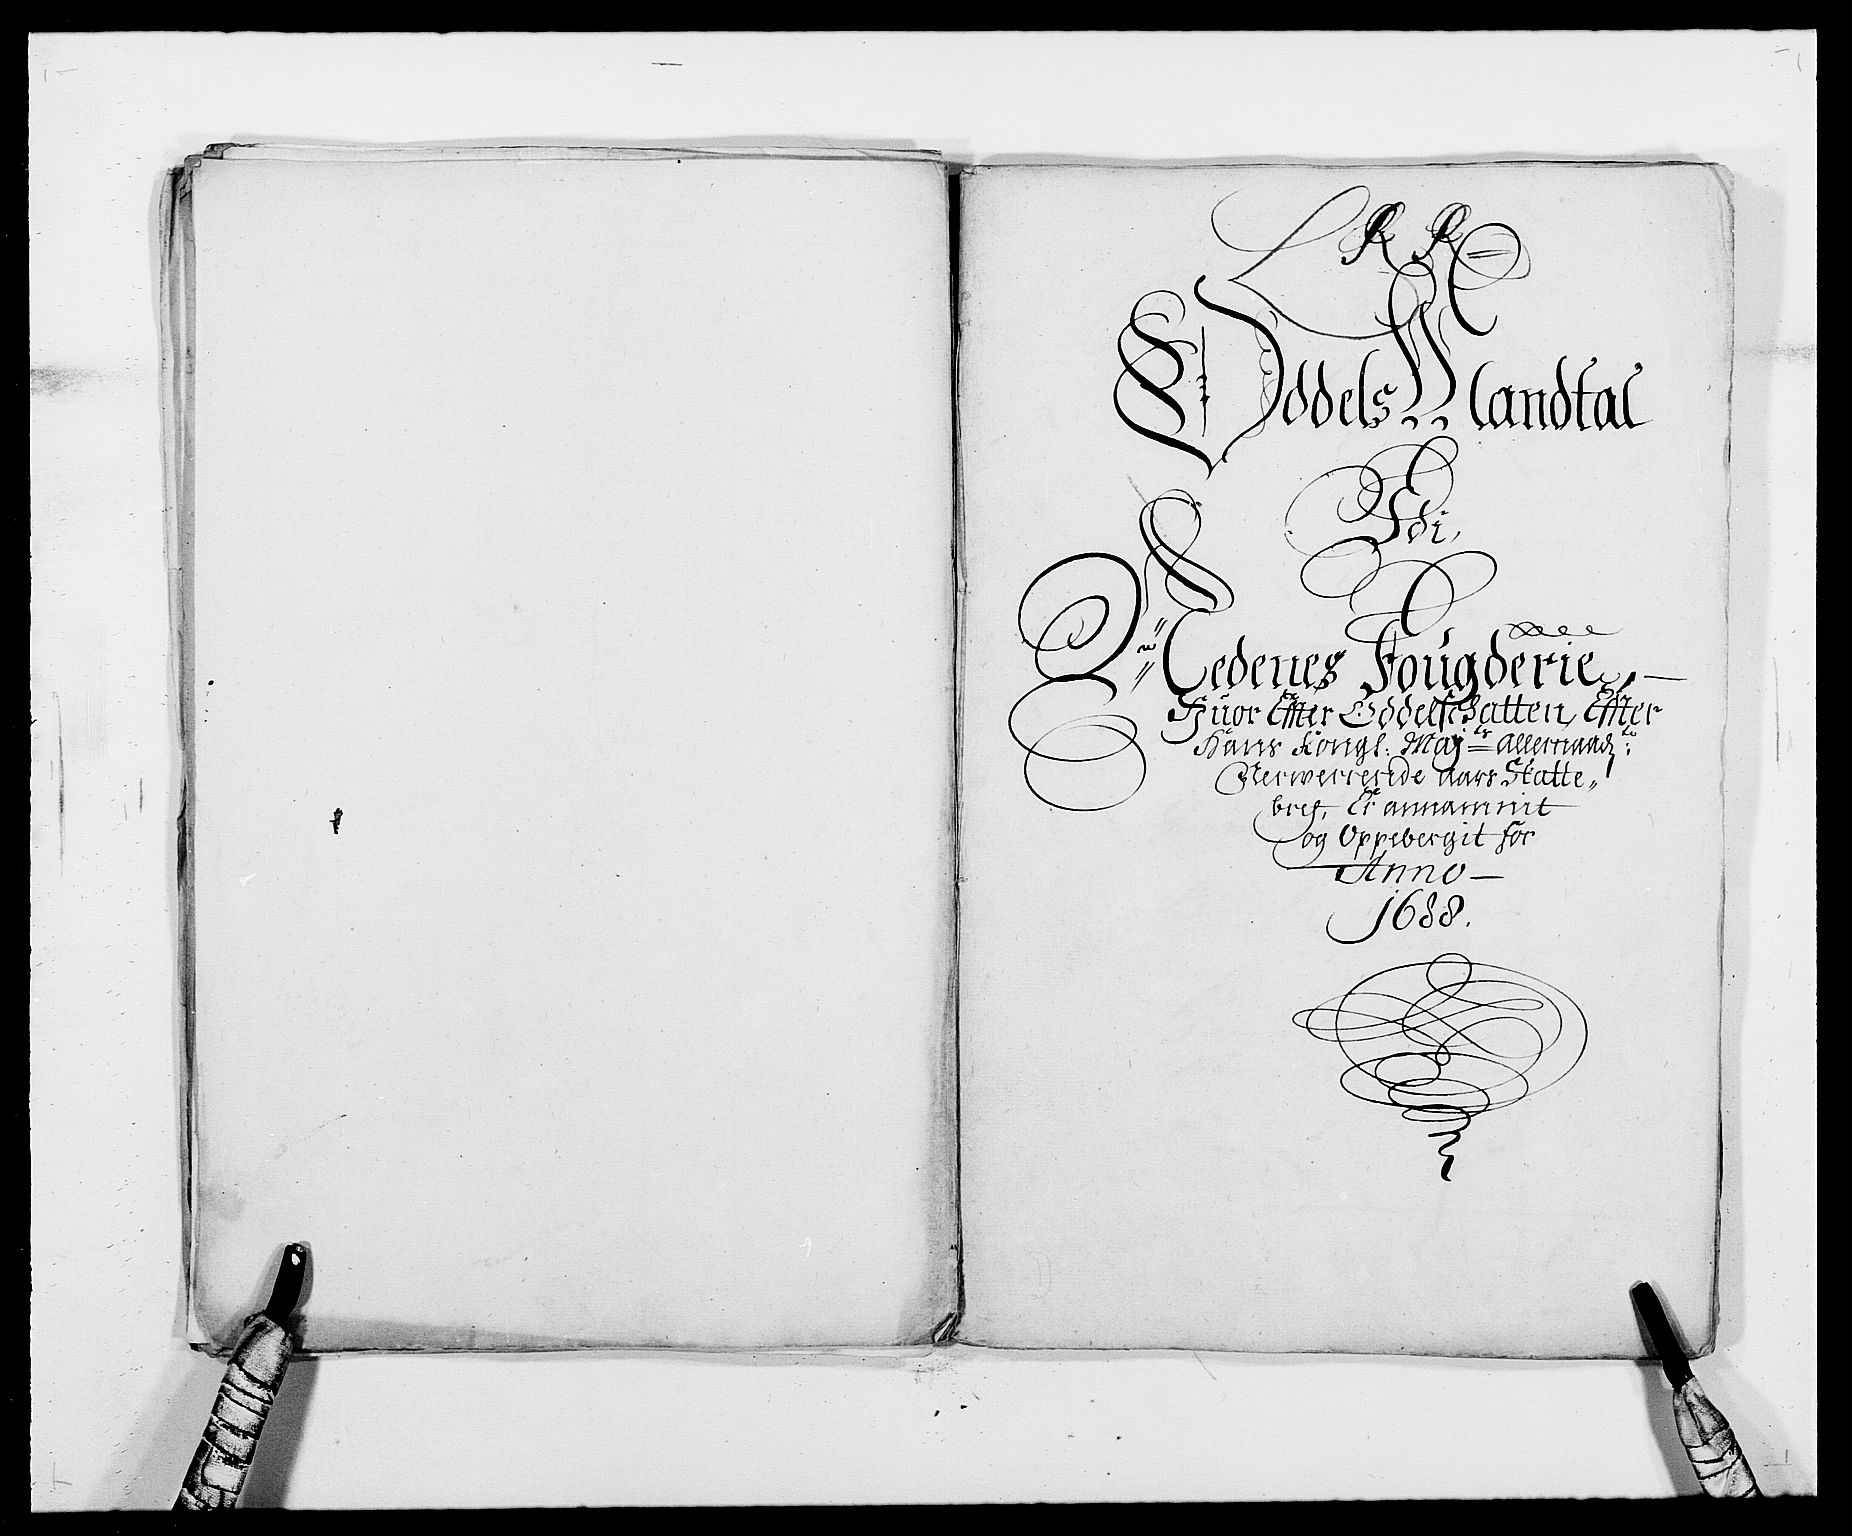 R R
Oddels Mandtal
Udi,
Nedenes Fougderie
Huor Effter Oddelschatten, Effter
Hans Kongl: May:ts allernaad:te
Nerwerrende aars Skatte„
bref, Er annammit
og Oppebergit for
Anno
1688.